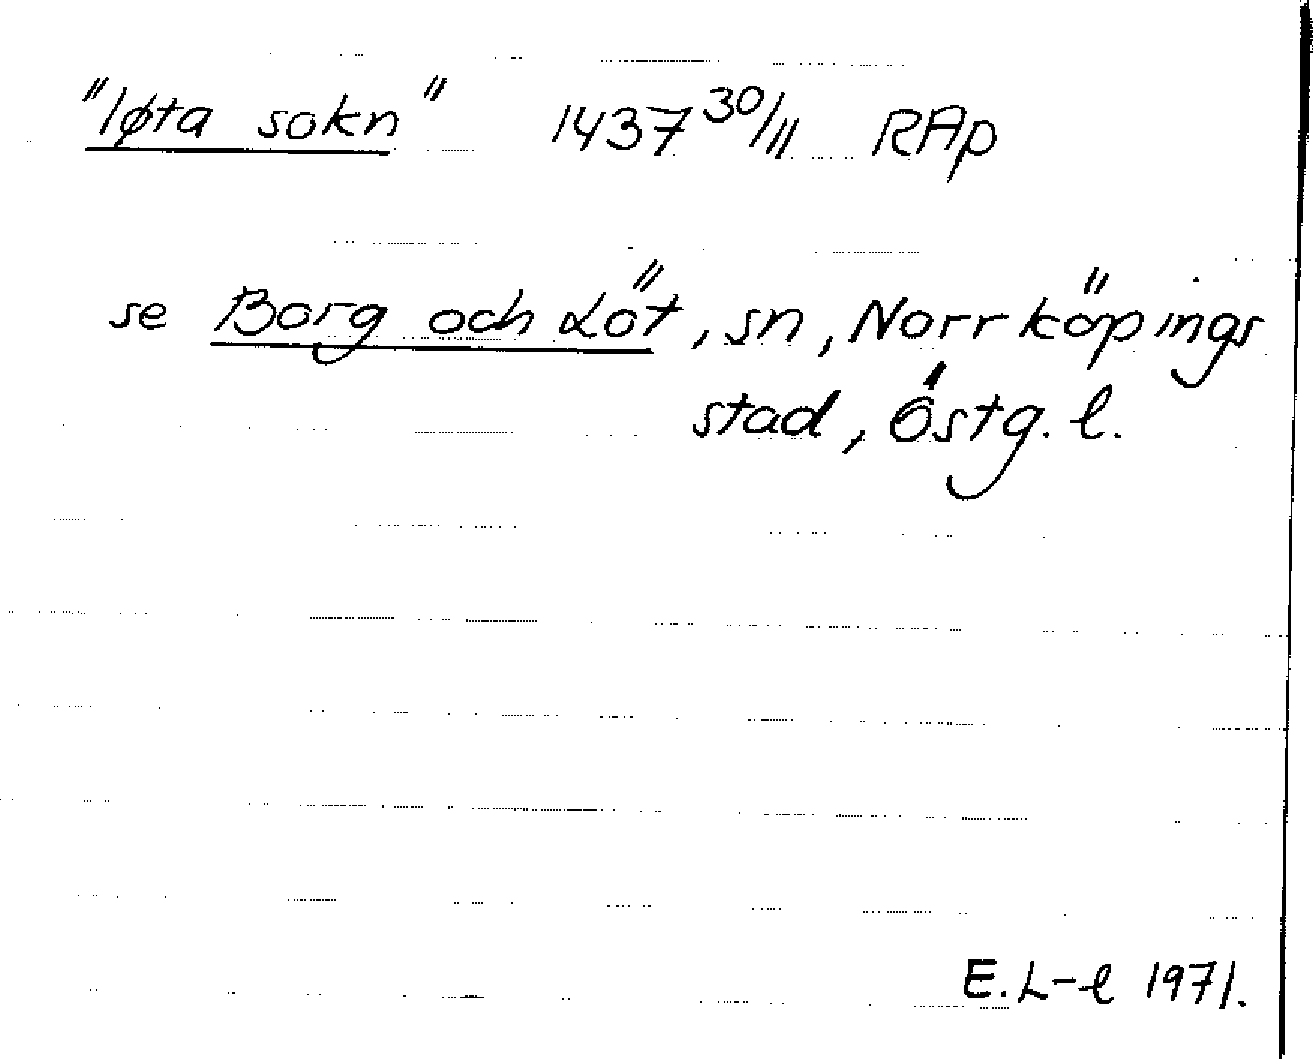 "løta sokn" 1437 30/11 RAp
se Borg och Löt, sn, Norrköpings
stad, Östg. l.
E. L-l 1971.